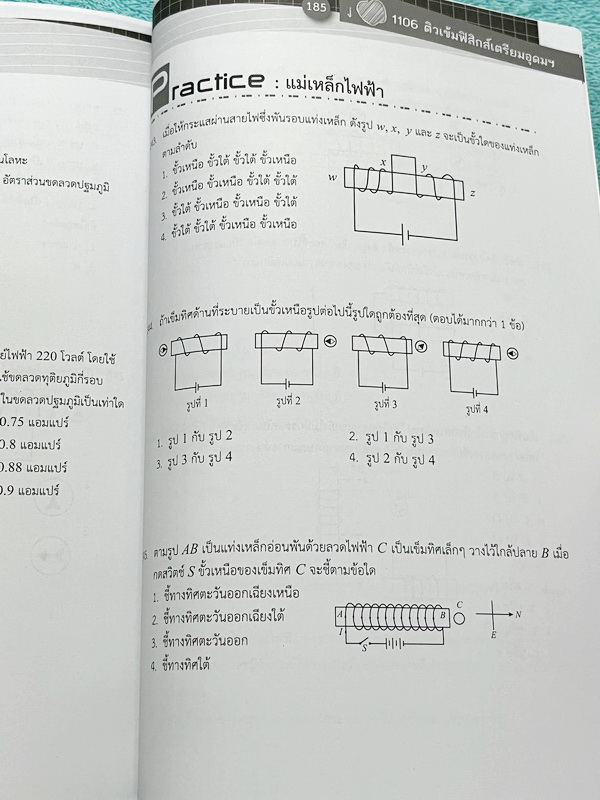 185
1106 ติวเข้มฟิสิกส์เตรียมอุดมฯ
Practice : แม่เหล็กไฟฟ้า
เมื่อให้กระแสผ่านสายไฟซึ่งพันรอบแท่งเหล็ก ดังรูป w, x, y และ z จะเป็นขั้วใดของแท่งเหล็ก
ตามลำดับ
1. ขั้วเหนือ ขั้วใต้ ขั้วใต้ ขั้วเหนือ
2. ขั้วเหนือ ขั้วเหนือ ขั้วใต้ ขั้วใต้
3. ขั้วใต้ ขั้วเหนือ ขั้วเหนือ ขั้วใต้
4. ขั้วใต้ ขั้วใต้ ขั้วเหนือ ขั้วเหนือ
w
x
y
z
ถ้าเข็มทิศด้านที่ระบายเป็นขั้วเหนือรูปต่อไปนี้รูปใดถูกต้องที่สุด (ตอบได้มากกว่า 1 ข้อ)
รูปที่ 1
รูปที่ 2
รูปที่ 3
รูปที่ 4
1. รูป 1 กับ รูป 2
2. รูป 1 กับ รูป 3
3. รูป 3 กับ รูป 4
4. รูป 2 กับ รูป 4
ตามรูป AB เป็นแท่งเหล็กอ่อนพันด้วยลวดไฟฟ้า C เป็นเข็มทิศเล็กๆ วางไว้ใกล้ปลาย B เมื่อ
กดสวิตช์ S ขั้วเหนือของเข็มทิศ C จะชี้ตามข้อใด
1. ชี้ทางทิศตะวันออกเฉียงเหนือ
2. ชี้ทางทิศตะวันออกเฉียงใต้
3. ชี้ทางทิศตะวันออก
4. ชี้ทางทิศใต้
A
B
C
N
E
I
S
นโลหะ
อัตราส่วนขดลวดปฐมภูมิ
ไฟฟ้า 220 โวลต์ โดยใช้
ใช้ขดลวดทุติยภูมิกี่รอบ
ในขดลวดปฐมภูมิเป็นเท่าใด
0.75 แอมแปร์
0.8 แอมแปร์
0.88 แอมแปร์
0.9 แอมแปร์